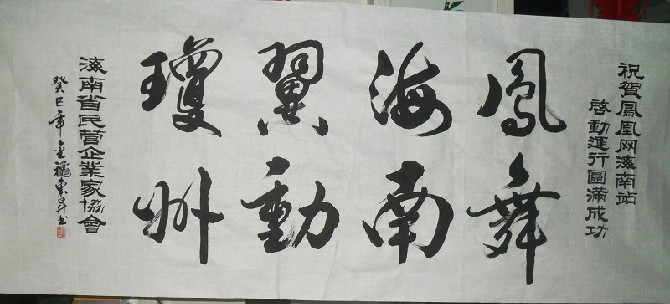 祝賀鳳凰网海南站
啓動運行圓滿成功
鳳舞
海南
翼動
瓊州
海南省民营企業家協會
癸巳年